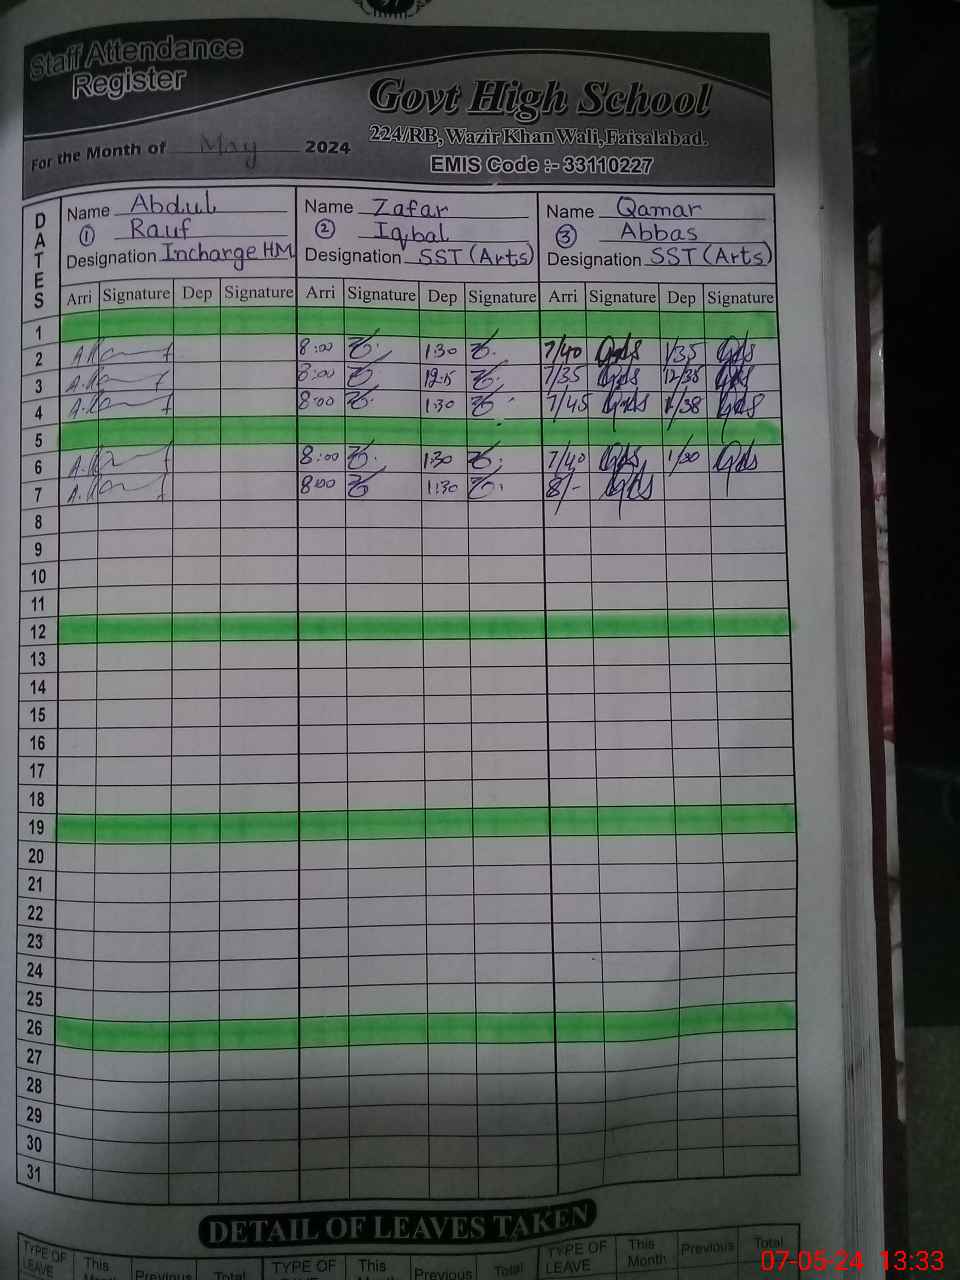 Staff Attendance
Register
Govt High School
224/RB, Wazir Khan Wali, Faisalabad.
For the Month of May 2024
EMIS Code :- 33110227
DATES
Name Abdul
① Rauf
Designation Incharge HM
Name Zafar
② Iqbal
Designation SST (Arts)
Name Qamar
③ Abbas
Designation SST (Arts)
Arri Signature Dep Signature Arri Signature Dep Signature Arri Signature Dep Signature
1
2 8:00 1:30 7/40 1/35
3 8:00 12:15 7/35 12/35
4 8:00 1:30 7/45 1/38
5
6 8:00 1:30 7/40 1/30
7 8:00 1:30 8/-
8
9
10
11
12
13
14
15
16
17
18
19
20
21
22
23
24
25
26
27
28
29
30
31
DETAIL OF LEAVES TAKEN
TYPE OF LEAVE This Month Previous Total TYPE OF LEAVE This Month Previous Total TYPE OF LEAVE This Month Previous Total
07-05-24 13:33